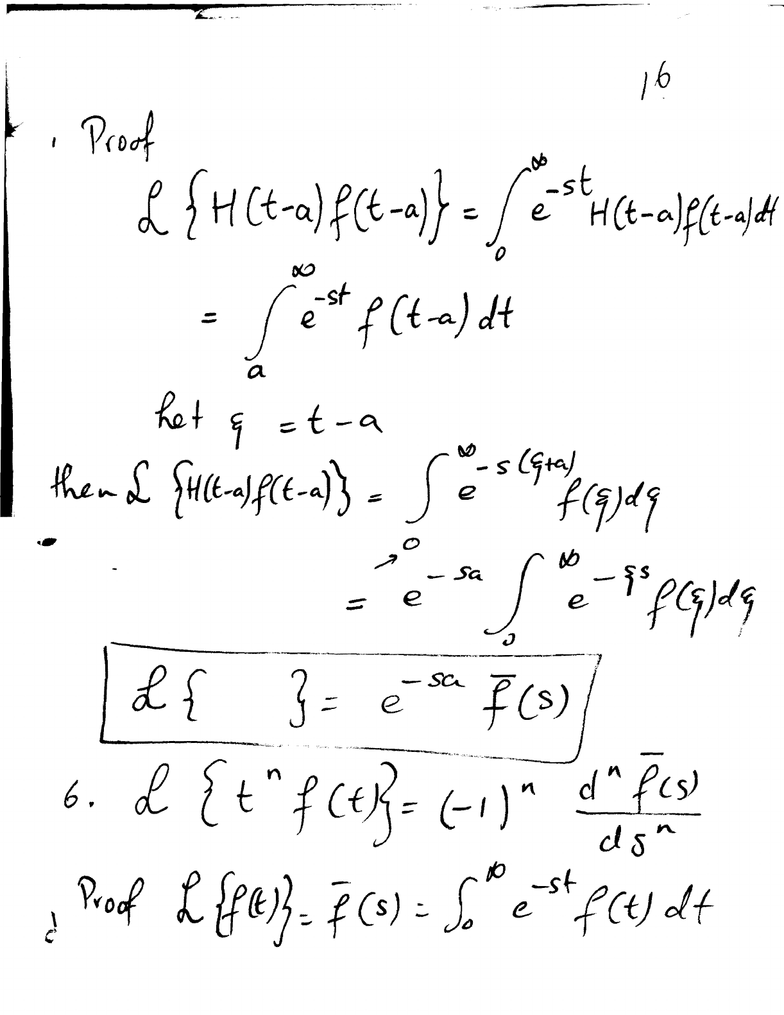 16
Proof
ℒ {H(t-a)f(t-a)} = ∫₀^∞ e^{-st} H(t-a)f(t-a)dt
= ∫ₐ^∞ e^{-st} f(t-a) dt
Let ξ = t-a
then ℒ {H(t-a)f(t-a)} = ∫₀^∞ e^{-s(ξ+a)} f(ξ)dξ
= e^{-sa} ∫₀^∞ e^{-ξs} f(ξ)dξ
ℒ{ } = e^{-sa} f̄(s)
6. ℒ {tⁿ f(t)} = (-1)ⁿ dⁿ f̄(s) / dsⁿ
Proof ℒ {f(t)} = f̄(s) = ∫₀^∞ e^{-st} f(t) dt